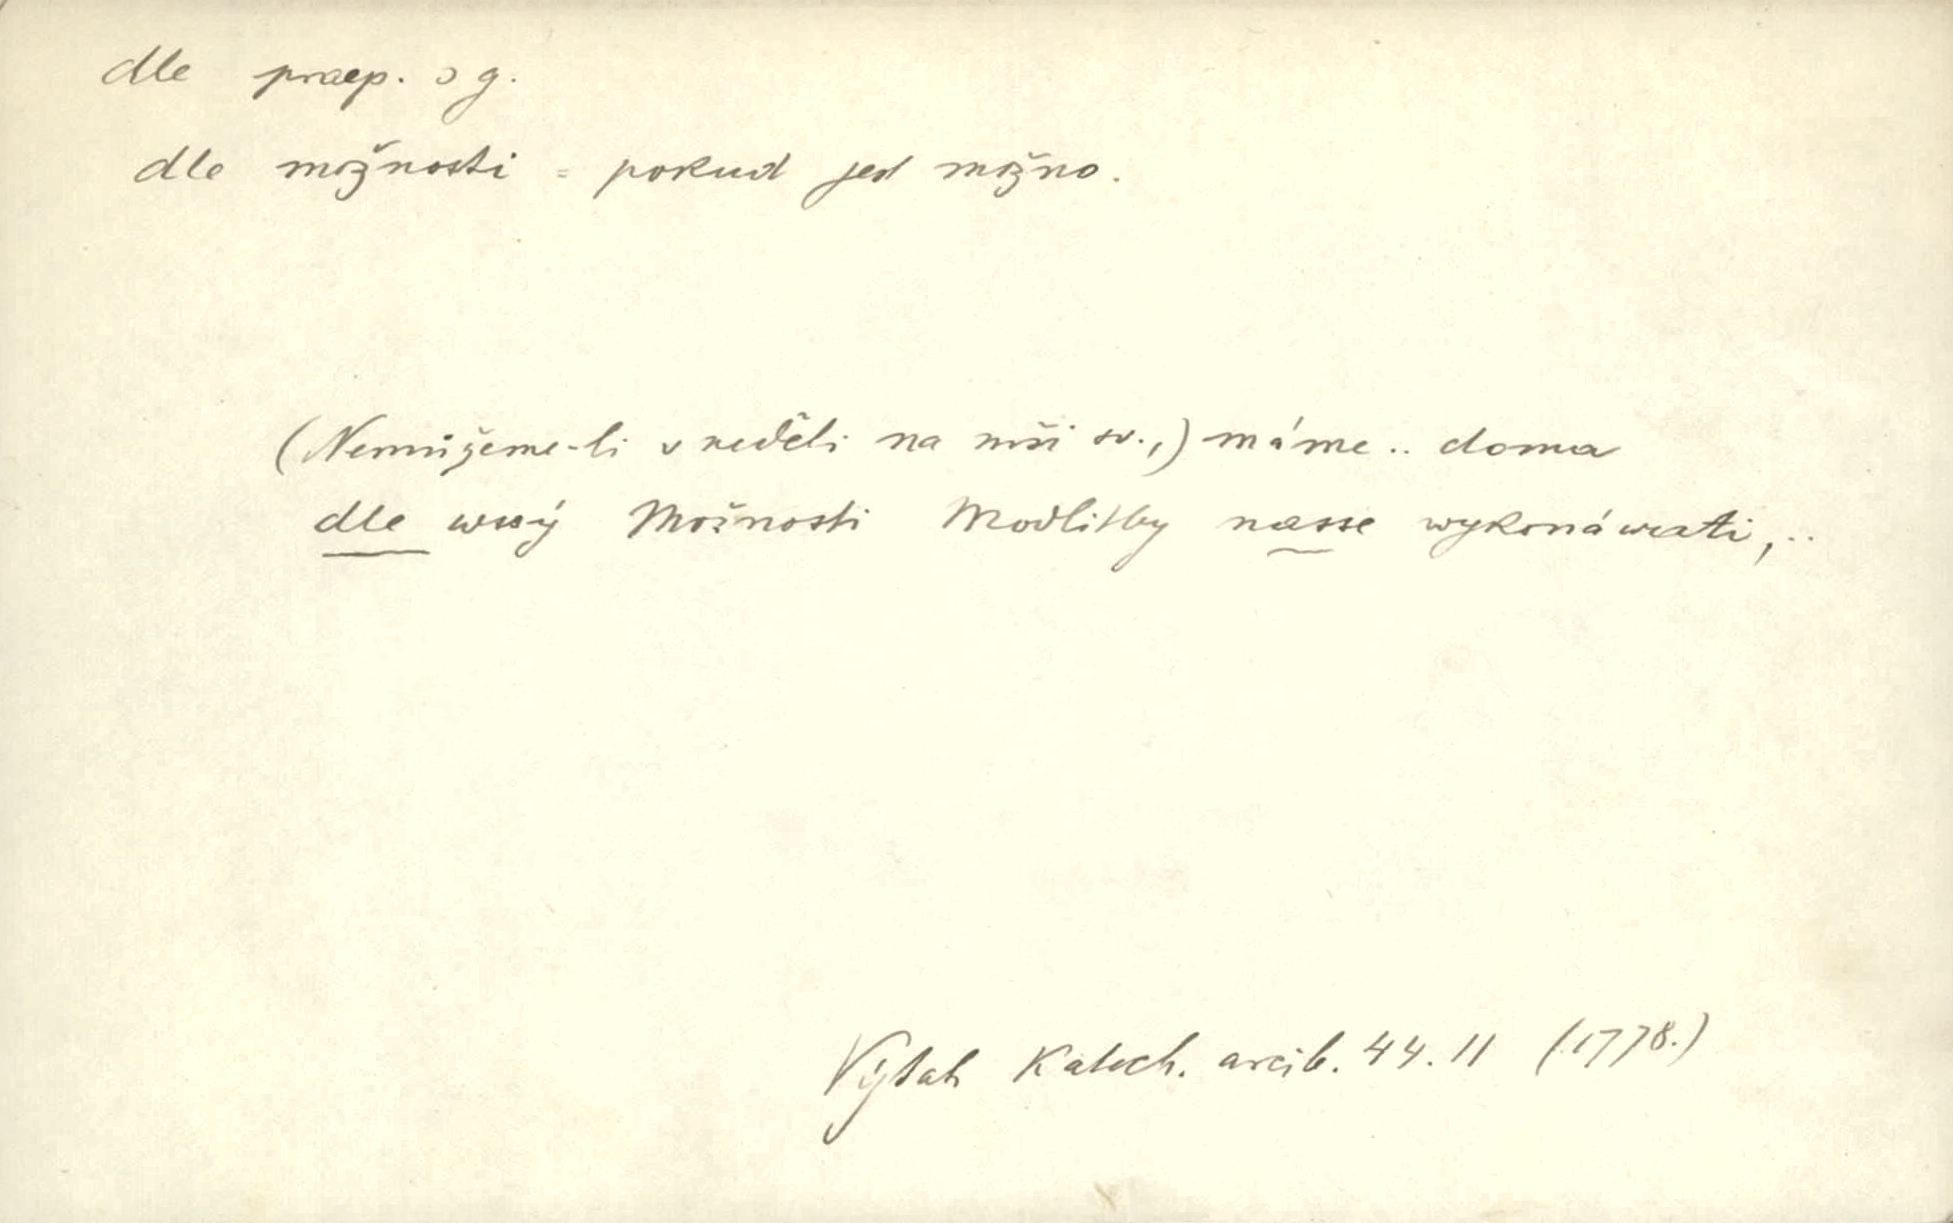 dle praep. s g.
dle možnosti = pokud jest možno.
(Nemůžeme-li v neděli na mši sv.,) máme .. doma
dle wssý Možnosti Modlitby nasse wykonáwati, ..
Výtah Katech. arcib. 44. 11 (1778.)